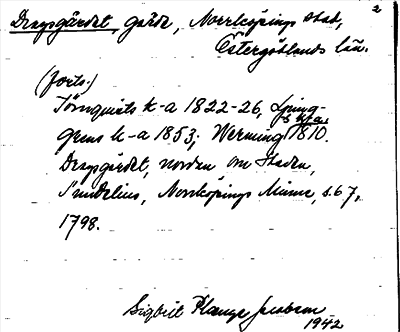 2
Dragsgärdet, gärde, Norrköpings stad,
Östergötlands län.
(forts.)
Törnquists k-a 1822-26, Ljung-
grens k-a 1853; Werming s k-a. 1810.
Dragsgärdet, nordan om Staden,
Sundelius, Norrköpings Minne, s. 67,
1798.
Sigbrit Plaenge Jacobson
1942